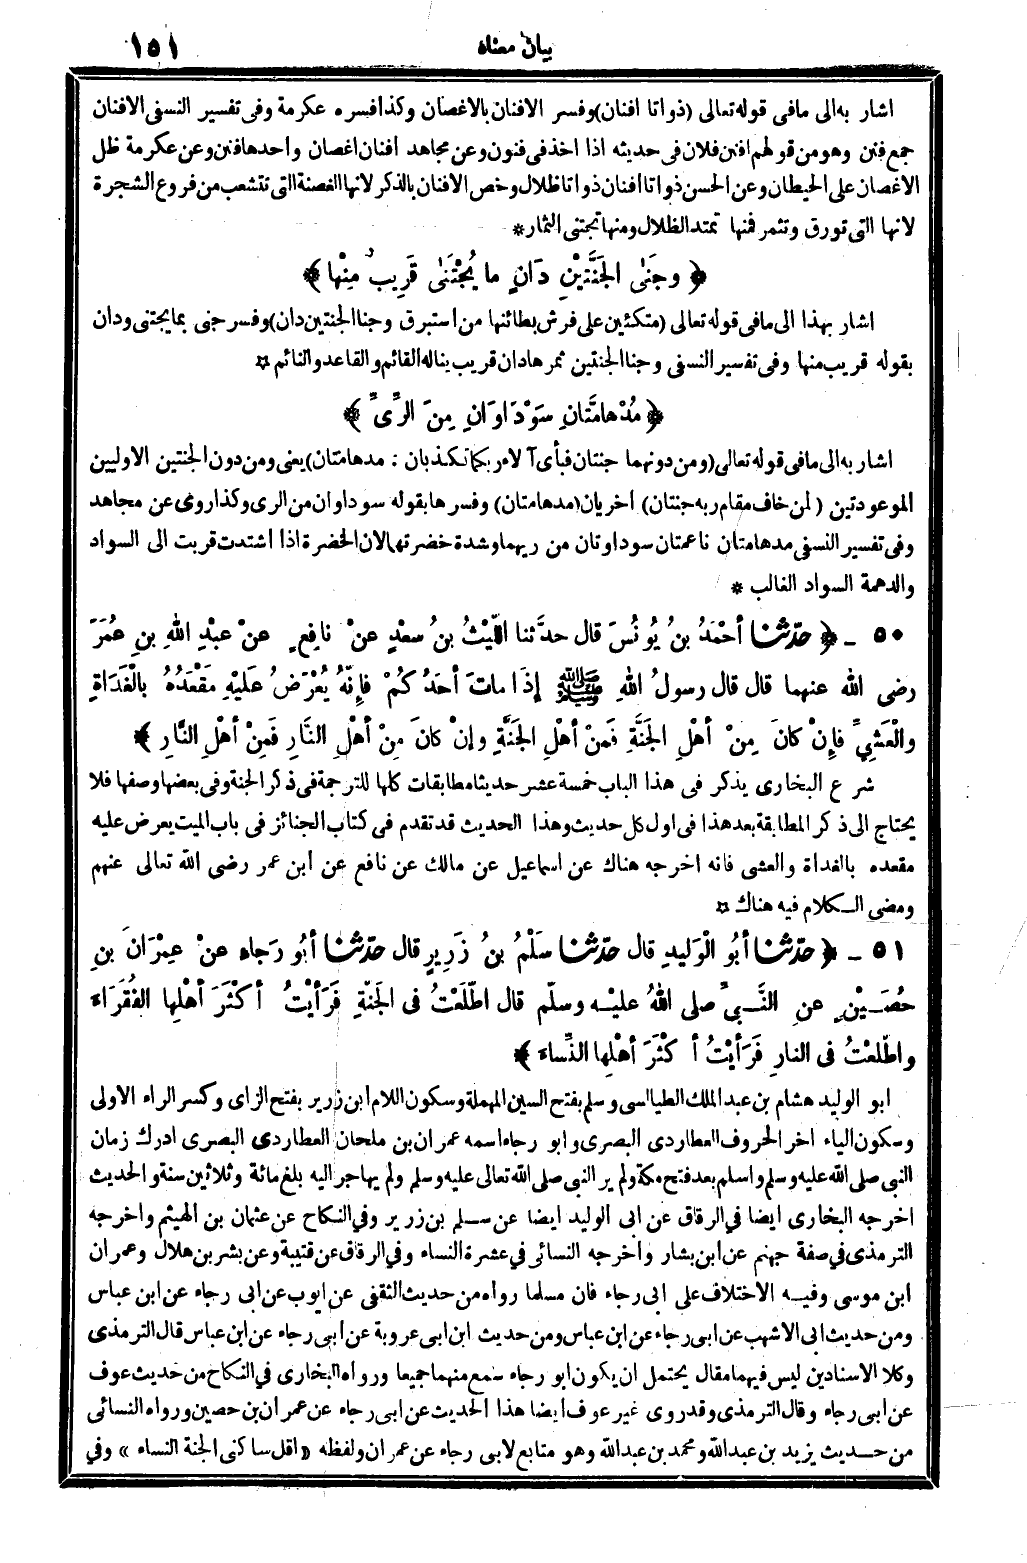 بيان معناه ١٥١
اشار به الى ما فى قوله تعالى (ذواتا افنان) وفسر الافنان بالاغصان وكذا فسره عكرمة وفى تفسير النسفى الافنان
جمع فنن وهو من قولهم افنن فلان فى حديثه اذا اخذ فى فنون وعن مجاهد افنان اغصان واحدها فنن وعن عكرمة ظل
الاغصان على الحيطان وعن الحسن ذواتا افنان ذواتا ظلال وخص الافنان بالذكر لانها الغصنة التى تتشعب من فروع الشجرة
لانها التى تورق وتثمر فمنها تمتد الظلال ومنها تجتنى الثمار *
﴿ وَجَنَى الجَنَّتَيْنِ دَانٍ ما يُجْتَنَى قَرِيبٌ مِنْها ﴾
اشار بهذا الى ما فى قوله تعالى (متكئين على فرش بطائنها من استبرق وجنا الجنتين دان) وفسر جنى بما يجتنى ودان
بقوله قريب منها وفى تفسير النسفى وجنا الجنتين ثمرها دان قريب يناله القائم والقاعد والنائم ¤
﴿ مُدْهامَّتَانِ سَوْدَاوَانِ مِنَ الرِّىِّ ﴾
اشار به الى ما فى قوله تعالى (ومن دونهما جنتان فبأى آلاء ربكما تكذبان : مدهامتان) يعنى ومن دون الجنتين الاوليين
الموعودتين (لمن خاف مقام ربه جنتان) اخريان (مدهامتان) وفسرها بقوله سوداوان من الرى وكذا روى عن مجاهد
وفى تفسير النسفى مدهامتان ناعمتان سوداوتان من ريهما وشدة خضرتهما لان الخضرة اذا اشتدت قربت الى السواد
والدهمة السواد الغالب *
٥٠ - ﴿ حدّثنا أحْمَدُ بنُ يُونُسَ قال حدّثنا اللَّيْثُ بنُ سعْدٍ عنْ نافِعٍ عنْ عبْدِ اللهِ بنِ عُمَرَ
رضى الله عنهما قال قال رسولُ اللهِ ﷺ إذَا ماتَ أحَدُكُمْ فإنَّهُ يُعْرَضُ عَلَيْهِ مَقْعَدُهُ بالْغَدَاةِ
والْعَشِيِّ فإنْ كانَ مِنْ أهْلِ الجَنَّةِ فَمنْ أهْلِ الجَنَّةِ وإنْ كانَ مِنْ أهْلِ النَّارِ فَمِنْ أهْلِ النَّارِ ﴾
شرع البخارى يذكر فى هذا الباب خمسة عشر حديثا مطابقات كلها للترجمة فى ذكر الجنة وفى بعضها وصفها فلا
يحتاج الى ذكر المطابقة بعد هذا فى اول كل حديث وهذا الحديث قد تقدم فى كتاب الجنائز فى باب الميت يعرض عليه
مقعده بالغداة والعشى فانه اخرجه هناك عن اسماعيل عن مالك عن نافع عن ابن عمر رضى الله تعالى عنهم
ومضى الكلام فيه هناك ¤
٥١ - ﴿ حدّثنا أبُو الْوَلِيدِ قال حدّثنا سَلْمُ بنُ زَرِيرٍ قال حدّثنا أبُو رَجاء عنْ عِمْرَانَ بنِ
حُصَيْنٍ عنِ النَّبيِّ صلى اللهُ عليْه وسلّم قال اطَّلَعْتُ فى الجَنَّةِ فَرَأيْتُ أكْثَرَ أهْلِها الفُقَرَاءَ
واطَّلَعْتُ فى النارِ فَرَأيْتُ أكْثَرَ أهْلِها النِّساءَ ﴾
ابو الوليد هشام بن عبد الملك الطيالسى وسلم بفتح السين المهملة وسكون اللام ابن زرير بفتح الزاى وكسر الراء الاولى
وسكون الياء اخر الحروف العطاردى البصرى وابو رجاء اسمه عمران بن ملحان العطاردى البصرى ادرك زمان
النبى صلى الله عليه وسلم واسلم بعد فتح مكة ولم ير النبى صلى الله تعالى عليه وسلم ولم يهاجر اليه بلغ مائة وثلاثين سنة والحديث
اخرجه البخارى ايضا فى الرقاق عن ابى الوليد ايضا عن سلم بن زرير وفى النكاح عن عثمان بن الهيثم واخرجه
الترمذى فى صفة جهنم عن ابن بشار واخرجه النسائى فى عشرة النساء وفى الرقاق عن قتيبة وعن بشر بن هلال وعمران
ابن موسى وفيه الاختلاف على ابى رجاء فان مسلما رواه من حديث الثقفى عن ايوب عن ابى رجاء عن ابن عباس
ومن حديث ابى الاشهب عن ابى رجاء عن ابن عباس ومن حديث ابن ابى عروبة عن ابى رجاء عن ابن عباس قال الترمذى
وكلا الاسنادين ليس فيهما مقال يحتمل ان يكون ابو رجاء سمع منهما جميعا ورواه البخارى فى النكاح من حديث عوف
عن ابى رجاء وقال الترمذى وقد روى غير عوف ايضا هذا الحديث عن ابى رجاء عن عمران بن حصين ورواه النسائى
من حديث يزيد بن عبد الله ومحمد بن عبد الله وهو متابع لابى رجاء عن عمران ولفظه «اقل ساكنى الجنة النساء» وفى